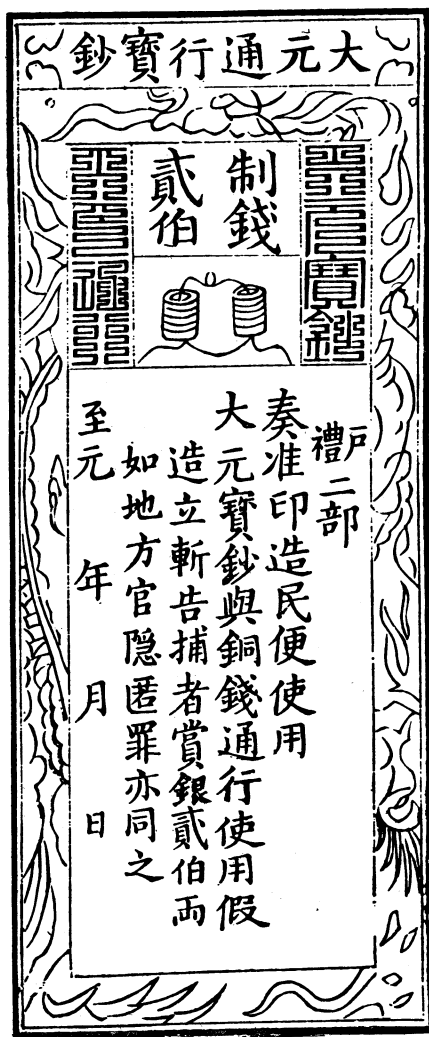 大元通行寶鈔
制錢
貳伯
戶禮二部
奏准印造民便使用
大元寶鈔與銅錢通行使用假
造立斬告捕者賞銀貳伯両
如地方官隐匿罪亦同之
至元 年 月 日